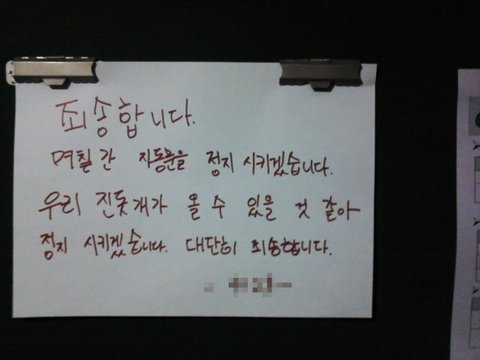 죄송합니다.
며칠간 자동문을 정지 시키겠습니다.
우리 진돗개가 올 수 있을 것 같아
정지 시키겠습니다. 대단히 죄송합니다.